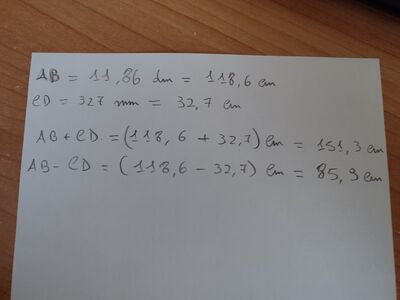 AB = 11,86 dm = 118,6 cm
CD = 327 mm = 32,7 cm
AB + CD = (118,6 + 32,7) cm = 151,3 cm
AB - CD = (118,6 - 32,7) cm = 85,9 cm